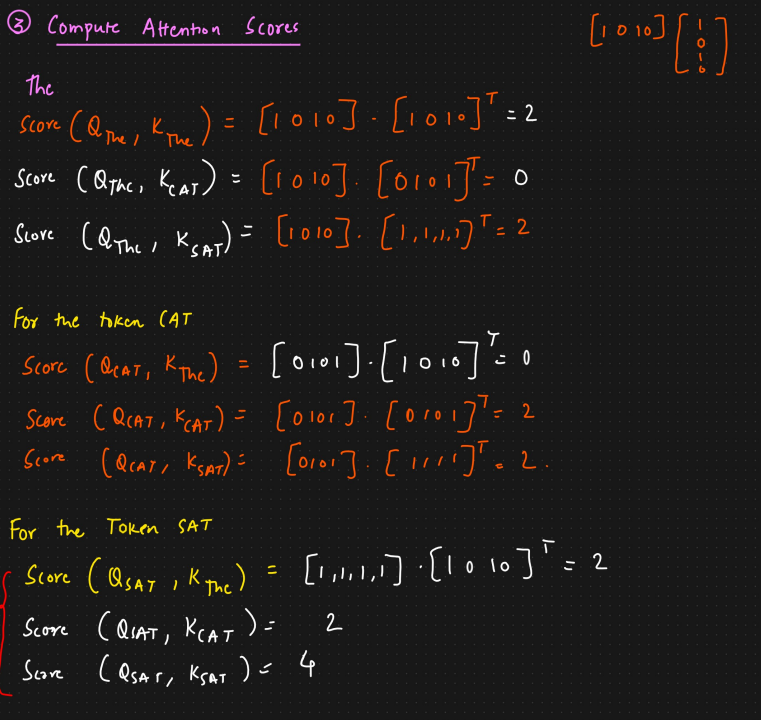 ③ Compute Attention Scores
[1 0 1 0] [1 0 1 0]
The
Score (Q_The, K_The) = [1 0 1 0] · [1 0 1 0]^T = 2
Score (Q_The, K_CAT) = [1 0 1 0] · [0 1 0 1]^T = 0
Score (Q_The, K_SAT) = [1 0 1 0] · [1,1,1,1]^T = 2
For the token CAT
Score (Q_CAT, K_The) = [0 1 0 1] · [1 0 1 0]^T = 0
Score (Q_CAT, K_CAT) = [0 1 0 1] · [0 1 0 1]^T = 2
Score (Q_CAT, K_SAT) = [0 1 0 1] · [1 1 1 1]^T = 2.
For the Token SAT
Score (Q_SAT, K_The) = [1,1,1,1] · [1 0 1 0]^T = 2
Score (Q_SAT, K_CAT) = 2
Score (Q_SAT, K_SAT) = 4